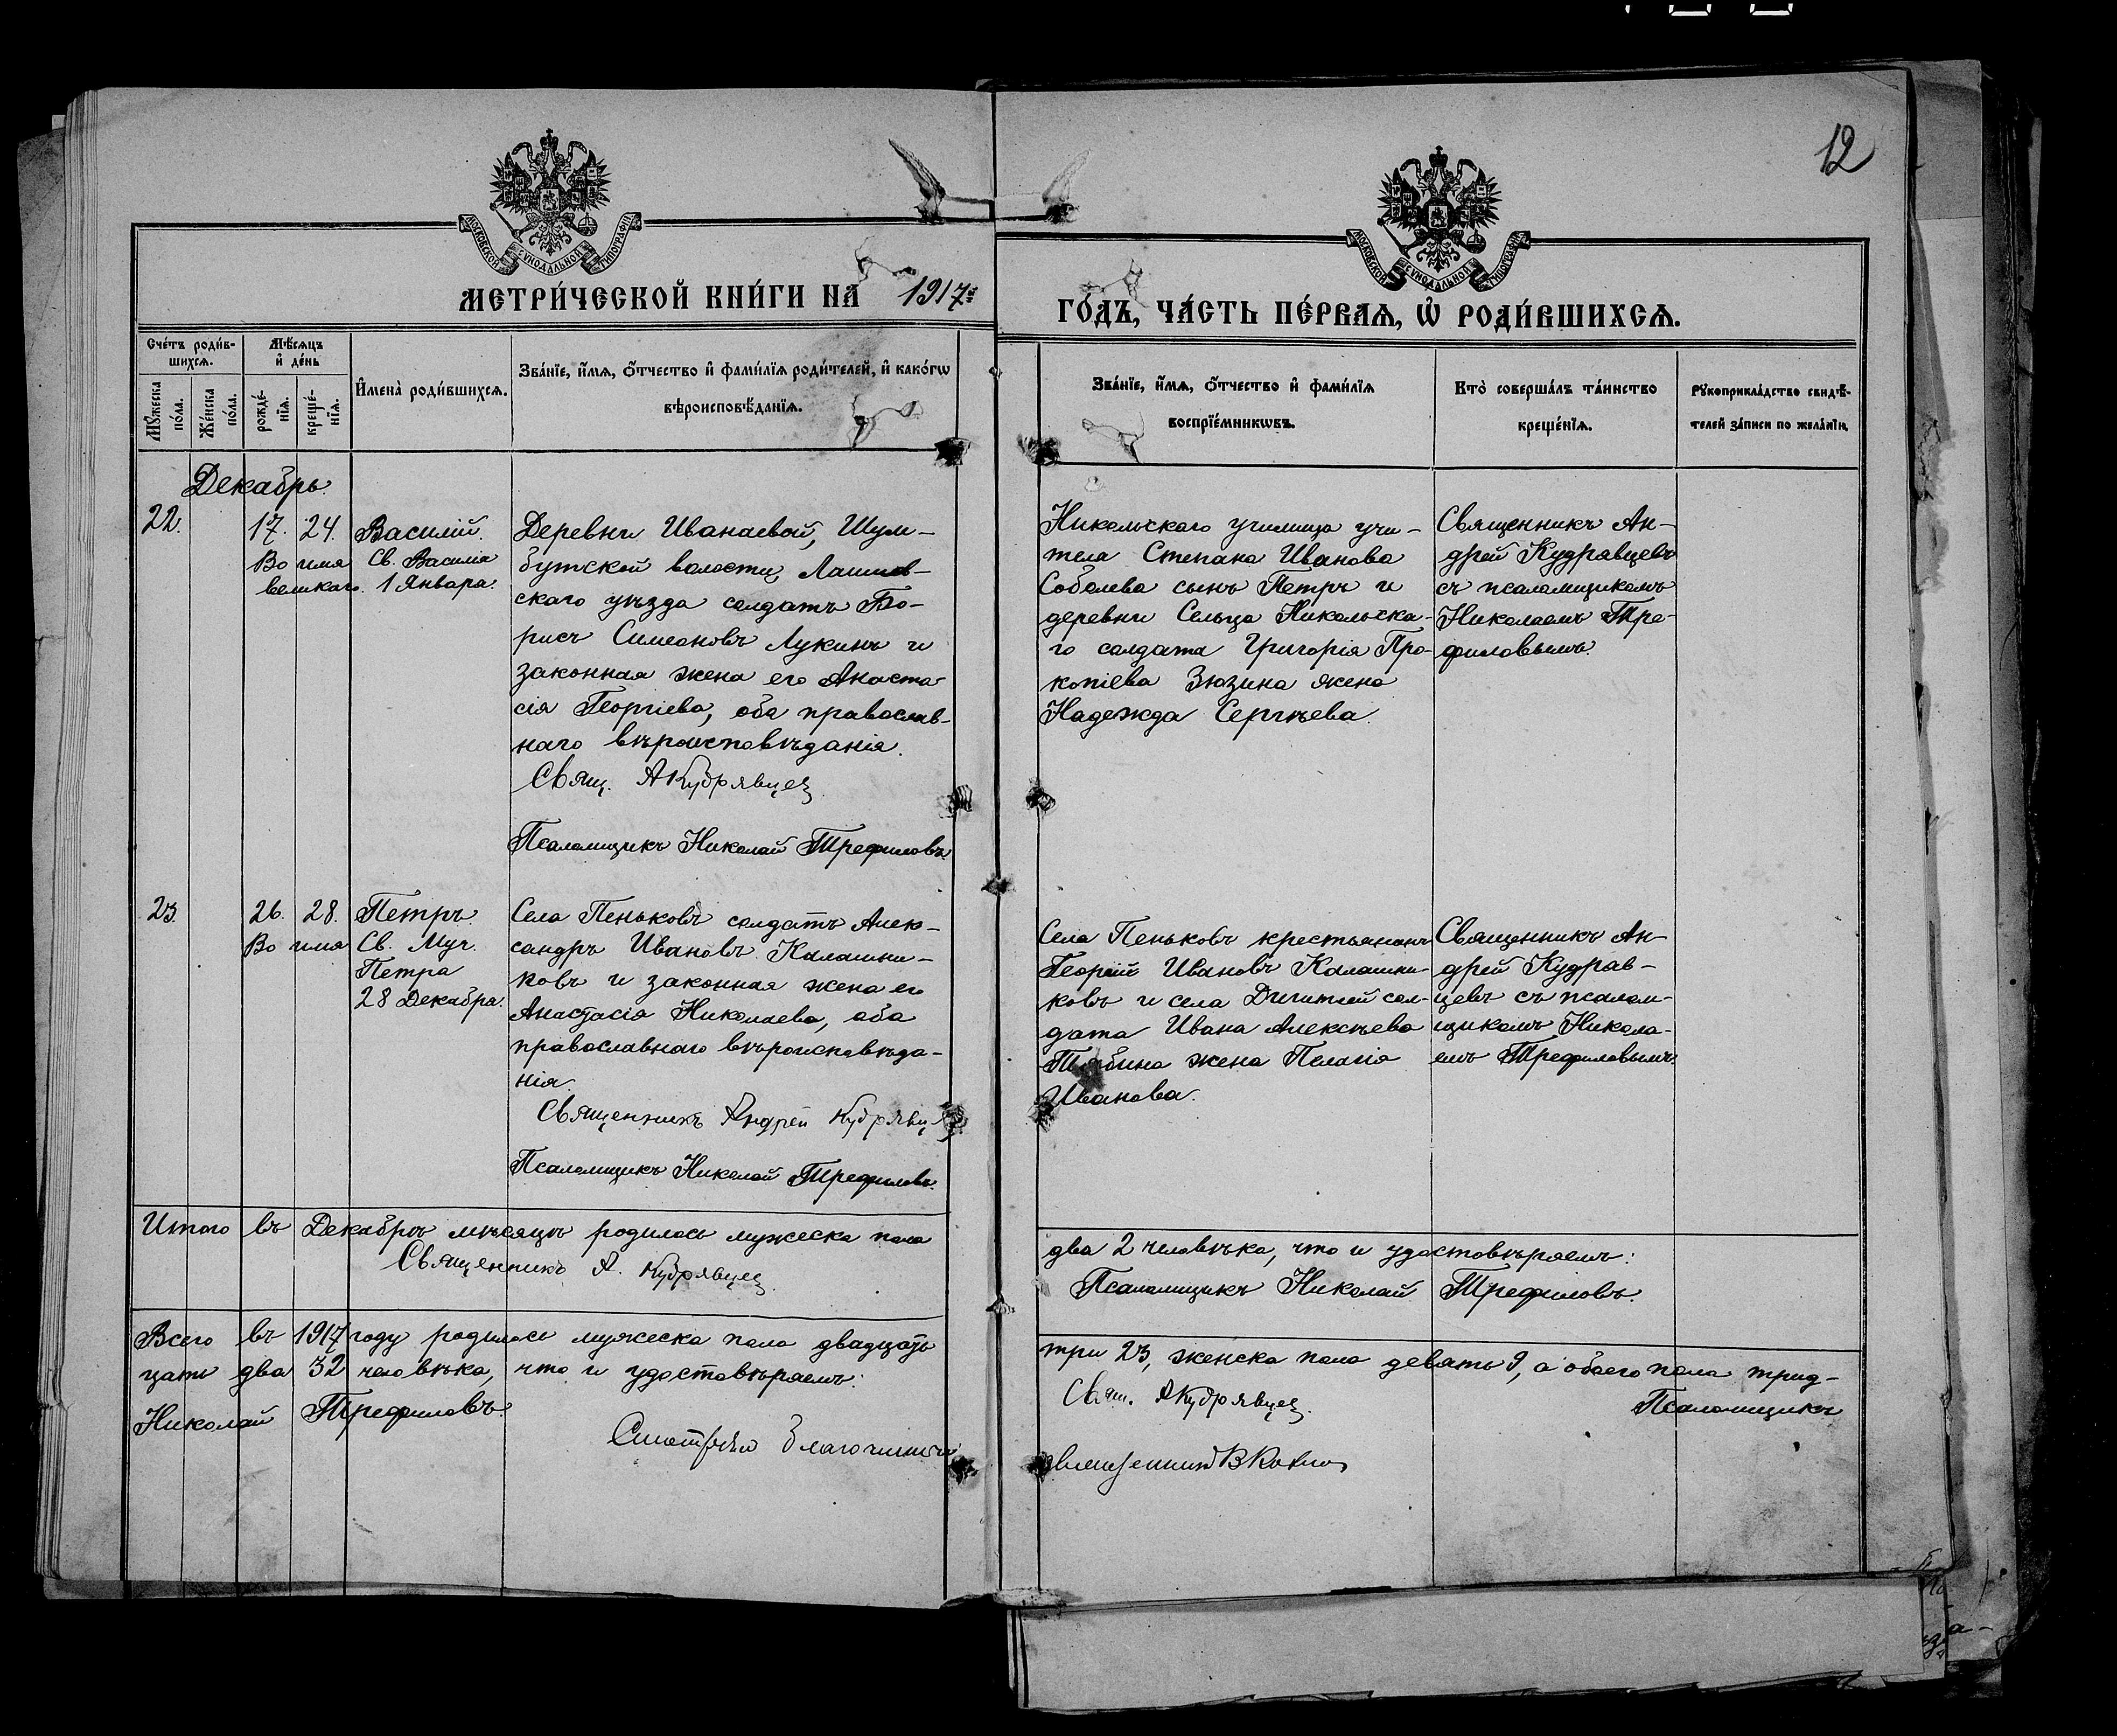 12
МОСКОВСКОЙ СУНОДАЛЬНОЙ ТИПОГРАФІИ
МОСКОВСКОЙ СУНОДАЛЬНОЙ ТИПОГРАФІИ
МЕТРИ́ЧЕСКОЙ КНИ́ГИ НА 1917й
ГО́ДЪ, ЧА́СТЬ ПЕ́РВАѦ, Ѡ РОДИ́ВШИХСѦ.
Сче́тъ роди́в-
шихсѧ.
Мѣ́сѧцъ
и҆ де́нь
Мꙋ́жеска
по́ла.
Же́нска
по́ла.
рожде́-
нїѧ.
креще́-
нїѧ.
И҆мена̀ роди́вшихсѧ.
Зва́нїе, и҆́мѧ, ѻ҆́тчество и҆ фами́лїѧ роди́телей, и҆ како́гѡ
вѣроисповѣ́данїѧ.
Зва́нїе, и҆́мѧ, ѻ҆́тчество и҆ фами́лїѧ
воспрїе́мникѡвъ.
Кто̀ соверша́лъ та́инство
креще́нїѧ.
Рꙋкоприкла́дство свидѣ́-
телей за́писи по жела́нїю.
Декабрь.
22. 17. 24. Василій.
Во имя Св. Василія
великаго. 1 Января.
Деревни Иванаевой, Шум-
бутской волости, Лаишев-
скаго уѣзда солдатъ Бо-
рисъ Симеоновъ Лукинъ и
законная жена его Анаста-
сія Георгіева, оба православ-
наго вѣроисповѣданія.
Свящ. А Кудрявцев
Псаломщикъ Николай Трефиловъ.
Никольскаго училища учи-
теля Степана Иванова
Соболева сынъ Петръ и
деревни Сельца Никольска-
го солдата Григорія Про-
копіева Зюзина жена
Надежда Сергѣева.
Священникъ Ан-
дрей Кудрявцевъ
съ псаломщикомъ
Николаемъ Тре-
филовымъ.
23. 26. 28. Петръ.
Во имя Св. Муч.
Петра
28 Декабря.
Села Пеньковъ солдатъ Алек-
сандръ Ивановъ Калашни-
ковъ и законная жена его
Анастасія Николаева, оба
православнаго вѣроисповѣда-
нія.
Священникъ Андрей Кудрявц
Псаломщикъ Николай Трефиловъ.
Села Пеньковъ крестьянинъ
Георгій Ивановъ Калашни-
ковъ и села сол-
дата Ивана Алексѣева
жена Пелагія
Иванова.
Священникъ Ан-
дрей Кудряв-
цевъ съ псалом-
щикомъ Никола-
емъ Трефиловымъ.
Итого въ Декабрѣ мѣсяцѣ родилось мужеска пола
два 2 человѣка, что и удостовѣряемъ:
Священникъ А. Кудрявцев
Псаломщикъ Николай Трефиловъ.
Всего въ 1917 году родилось мужеска пола двадцать
три 23, женска пола девять 9, а обоего пола трид-
цать два 32 человѣка, что и удостовѣряемъ:
Свящ. А Кудрявцев. Псаломщикъ
Николай Трефиловъ.
Смотрѣлъ Благочинный
священникъ В